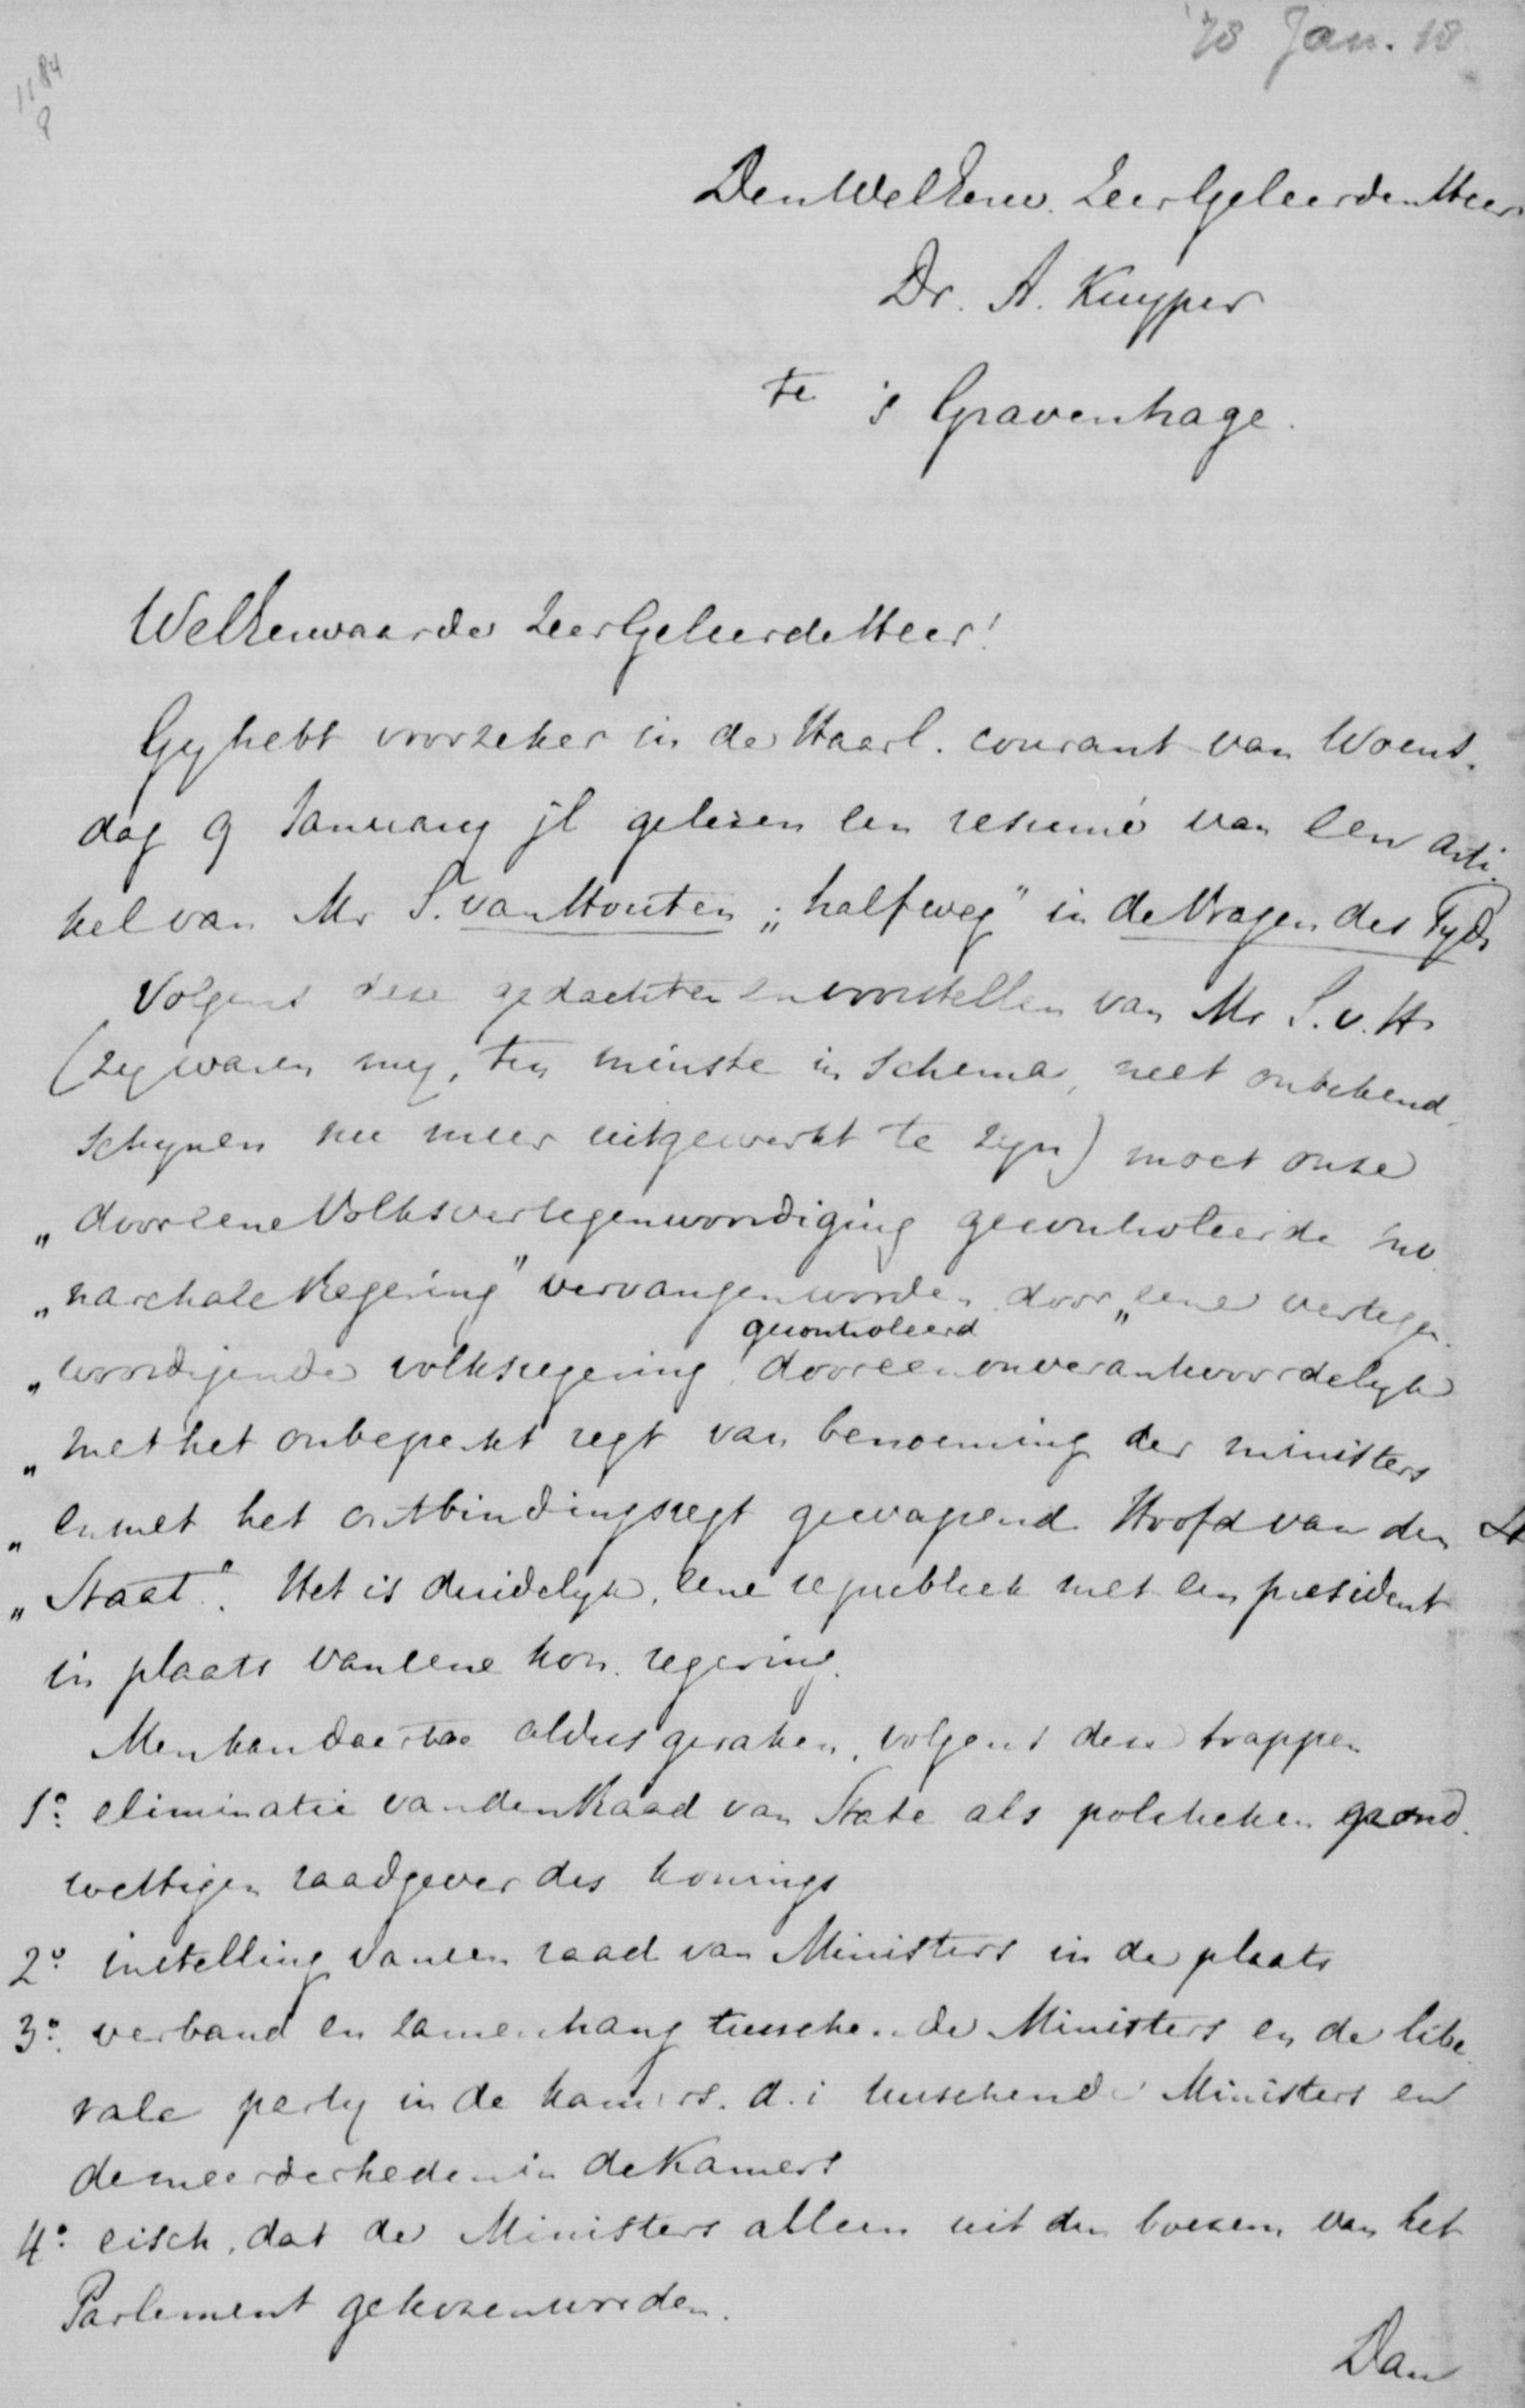 '78 Jan. 18
1184
8
Den WelEerw. ZeerGeleerden Heer
Dr. A. Kuyper
te 's Gravenhage.
WelEerwaarde ZeerGeleerde Heer!
Gy hebt voorzeker in de Haarl. courant van Woens-
dag 9 January jl gelezen een resumé van een arti-
kel van Mr S. van Houten „halfweg" in de Vragen des Tyds
Volgens deze gedachten en voorstellen van Mr S. v. H.
(zy waren my, ten minste in schema, niet onbekend,
schynen nu meer uitgewerkt te zyn) moet onze
„door eene Volksvertegenwoordiging gecontroleerde mo-
„narchale Regering" vervangen worden door „eene vertegen-
„woordigende volksregering gecontroleerd door een onverantwoordelyk
„met het onbeperkt regt van benoeming der ministers
„en met het ontbindingsregt gewapend Hoofd van den St
„Staat". Het is duidelyk, eene republiek met een president
in plaats van eene kon. regering.
Men kan daartoe aldus geraken, volgens deze trappen
1o. eliminatie van den Raad van State als politieken grond-
wettigen raadgever des konings
2o. instelling van een raad van Ministers in de plaats
3o. verband en zamenhang tusschen de Ministers en de libe-
rale party in de kamers. d. i tusschen de Ministers en
de meerderheden in de Kamers
4o. eisch, dat de Ministers alleen uit den boezem van het
Parlement gekozen worden.
Dan